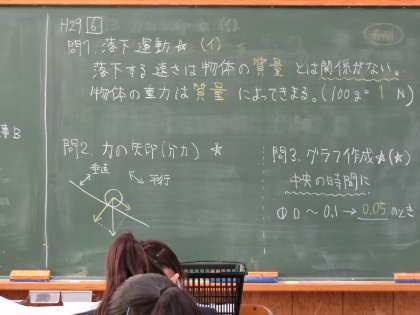 H29 6
問1. 落下運動 ☆ (イ)
落下する速さは物体の質量とは関係がない。
物体の重力は質量によってきまる。(100g = 1 N)
問2. 力の矢印(分力) ☆
垂直
平行
問3. グラフ作成 ☆(☆)
中央の時間に
① 0 〜 0.1 → 0.05 のとき